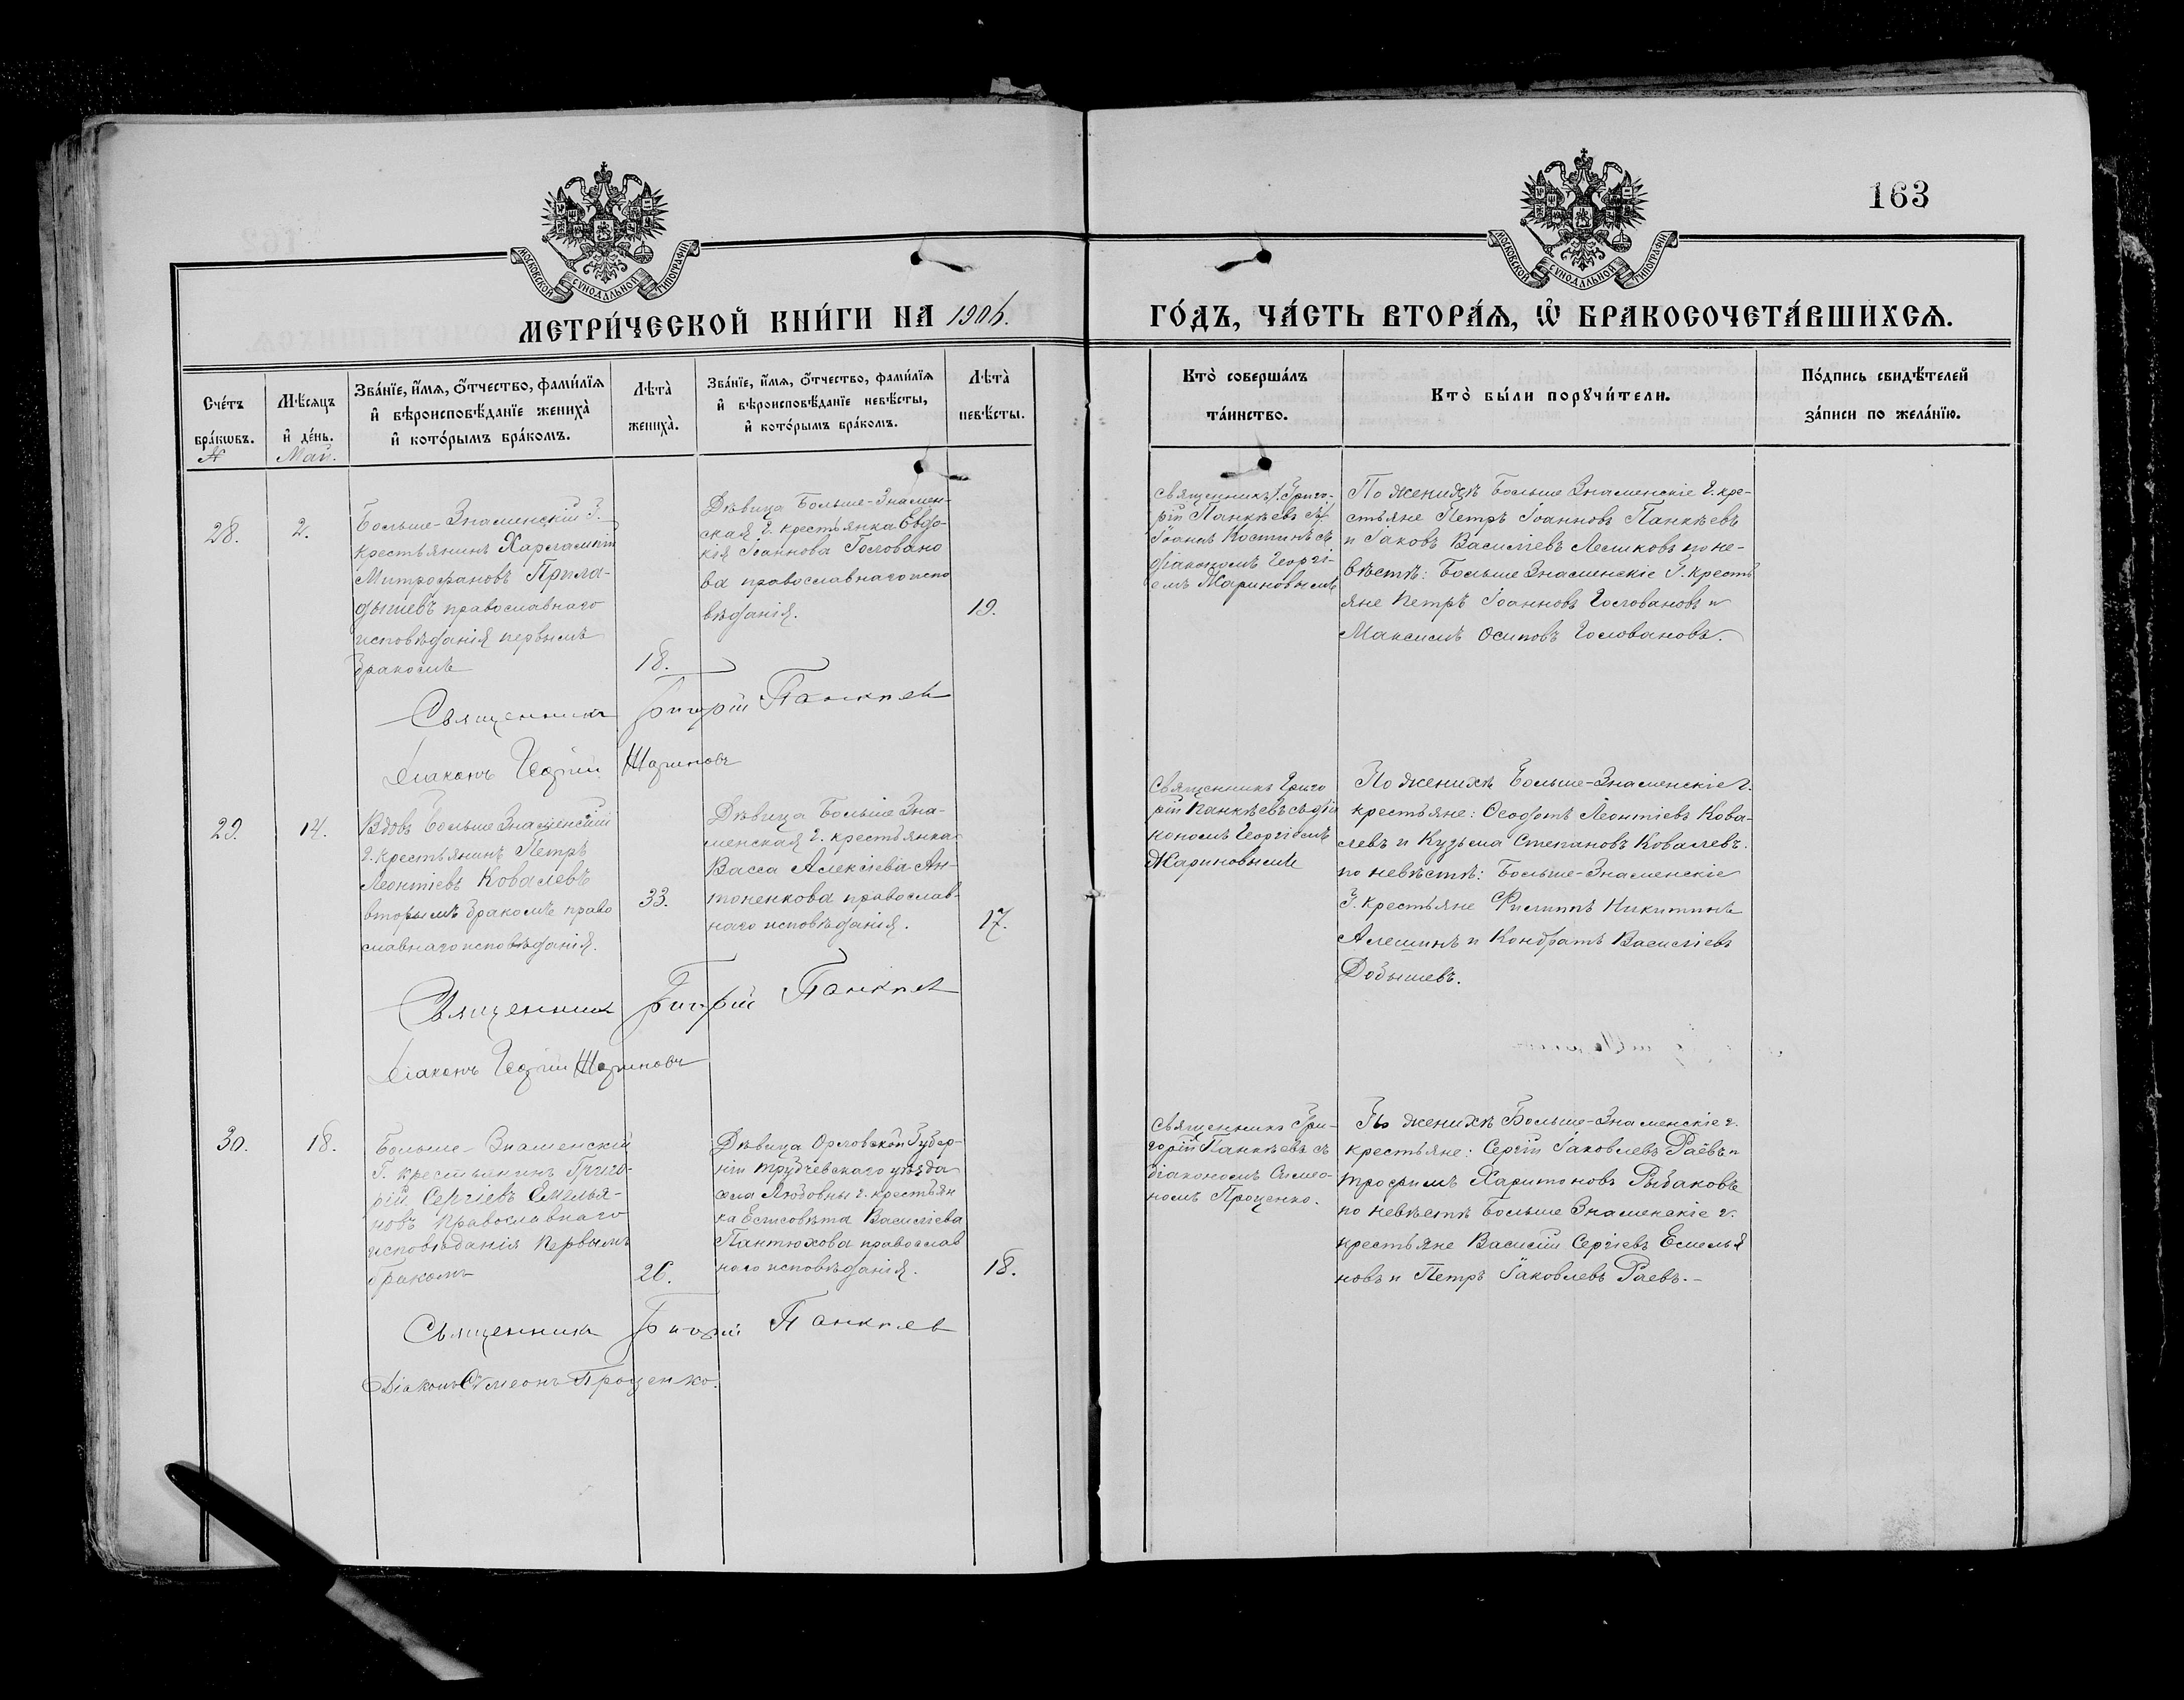 163
МОСКОВСКОЙ СѴНОДАЛЬНОЙ ТИПОГРАФІИ
МОСКОВСКОЙ СѴНОДАЛЬНОЙ ТИПОГРАФІИ
МЕТРИ́ЧЕСКОЙ КНИ́ГИ НА 1906. ГО́ДЪ, ЧА́СТЬ ВТОРА́Ѧ, Ѽ БРАКОСОЧЕТА́ВШИХСѦ.
Сче́тъ
бра́кѡвъ.
№
Мѣ́сѧцъ
и҆ де́нь.
Май.
Зва́нїе, и҆́мѧ, ѻ҆́тчество, фами́лїѧ
и҆ вѣроисповѣ́данїе жениха̀
и҆ кото́рымъ бра́комъ.
Лѣта̀
жениха̀.
Зва́нїе, и҆́мѧ, ѻ҆́тчество, фами́лїѧ
и҆ вѣроисповѣ́данїе невѣ́сты,
и҆ кото́рымъ бра́комъ.
Лѣта̀
невѣ́сты.
Кто̀ соверша́лъ
та́инство.
Кто̀ бы́ли порꙋчи́тели.
По́дпись свидѣ́телей
за́писи по жела́нїю.
28.
2.
Больше-Знаменскій г.
крестьянинъ Харлампій
Митрофановъ Прила-
дышевъ православнаго
исповѣданія первымъ
бракомъ
18.
Дѣвица Больше-Знамен-
ская г. крестьянка Евдо-
кія Іоаннова Головано
ва православнаго испо
вѣданія.
19.
Священникъ Григо-
рій Панкѣевъ
Іоаннъ Костинъ съ
діакономъ Георгі-
емъ Жариновымъ
По женихѣ Больше Знаменскіе г. кре-
стьяне Петръ Іоанновъ Панкѣевъ
и Іаковъ Василіевъ Лешковъ по не-
вѣстѣ: Больше Знаменскіе г. кресть
яне Петръ Іоанновъ Головановъ и
Максимъ Осиповъ Головановъ.
Священникъ Григорій Панкѣев
Діаконъ Георгій Жариновъ
29.
14.
Вдовъ Больше Знаменскій
г. крестьянинъ Петръ
Леонтіевъ Ковалевъ
вторымъ бракомъ право
славнаго исповѣданія.
33.
Дѣвица Больше Зна-
менская г. крестьянка
Васса Алексіева Ан-
тоненкова православ-
наго исповѣданія.
17.
Священникъ Григо
рій Панкѣевъ съ діа
кономъ Георгіемъ
Жариновымъ
По женихѣ Больше-Знаменскіе г.
крестьяне: Ѳеофотъ Леонтіевъ Кова-
левъ и Кузьма Степановъ Ковалевъ.
по невѣстѣ: Больше-Знаменскіе
г. крестьяне Филиппъ Никитинъ
Алешинъ и Кондратъ Василіевъ
Добышевъ.
Священник Григорій Панкѣев
Діаконъ Георгій Жариновъ
30.
18.
Больше-Знаменскій
г. крестьянинъ Григо-
рій Сергіевъ Емелья-
новъ православнаго
исповѣданія первымъ
бракомъ
26.
Дѣвица Орловской Губер-
ніи Трубчевскаго уѣзда
села Любовны г. крестьян
ка Елисовѣта Василіева
Пантюхова православ
наго исповѣданія.
18.
Священникъ Гри-
горій Панкѣевъ съ
діакономъ Симео-
номъ Проценко.
По женихѣ Больше-Знаменскіе г.
крестьяне: Сергій Іаковлевъ Раевъ и
Трофимъ Харитоновъ Рыбаковъ
по невѣстѣ Больше Знаменскіе г.
крестьяне Василій Сергіевъ Емелья
новъ и Петръ Іаковлевъ Раевъ.-
Священникъ Григорій Панкѣев
Діаконъ Симеонъ Проценко.